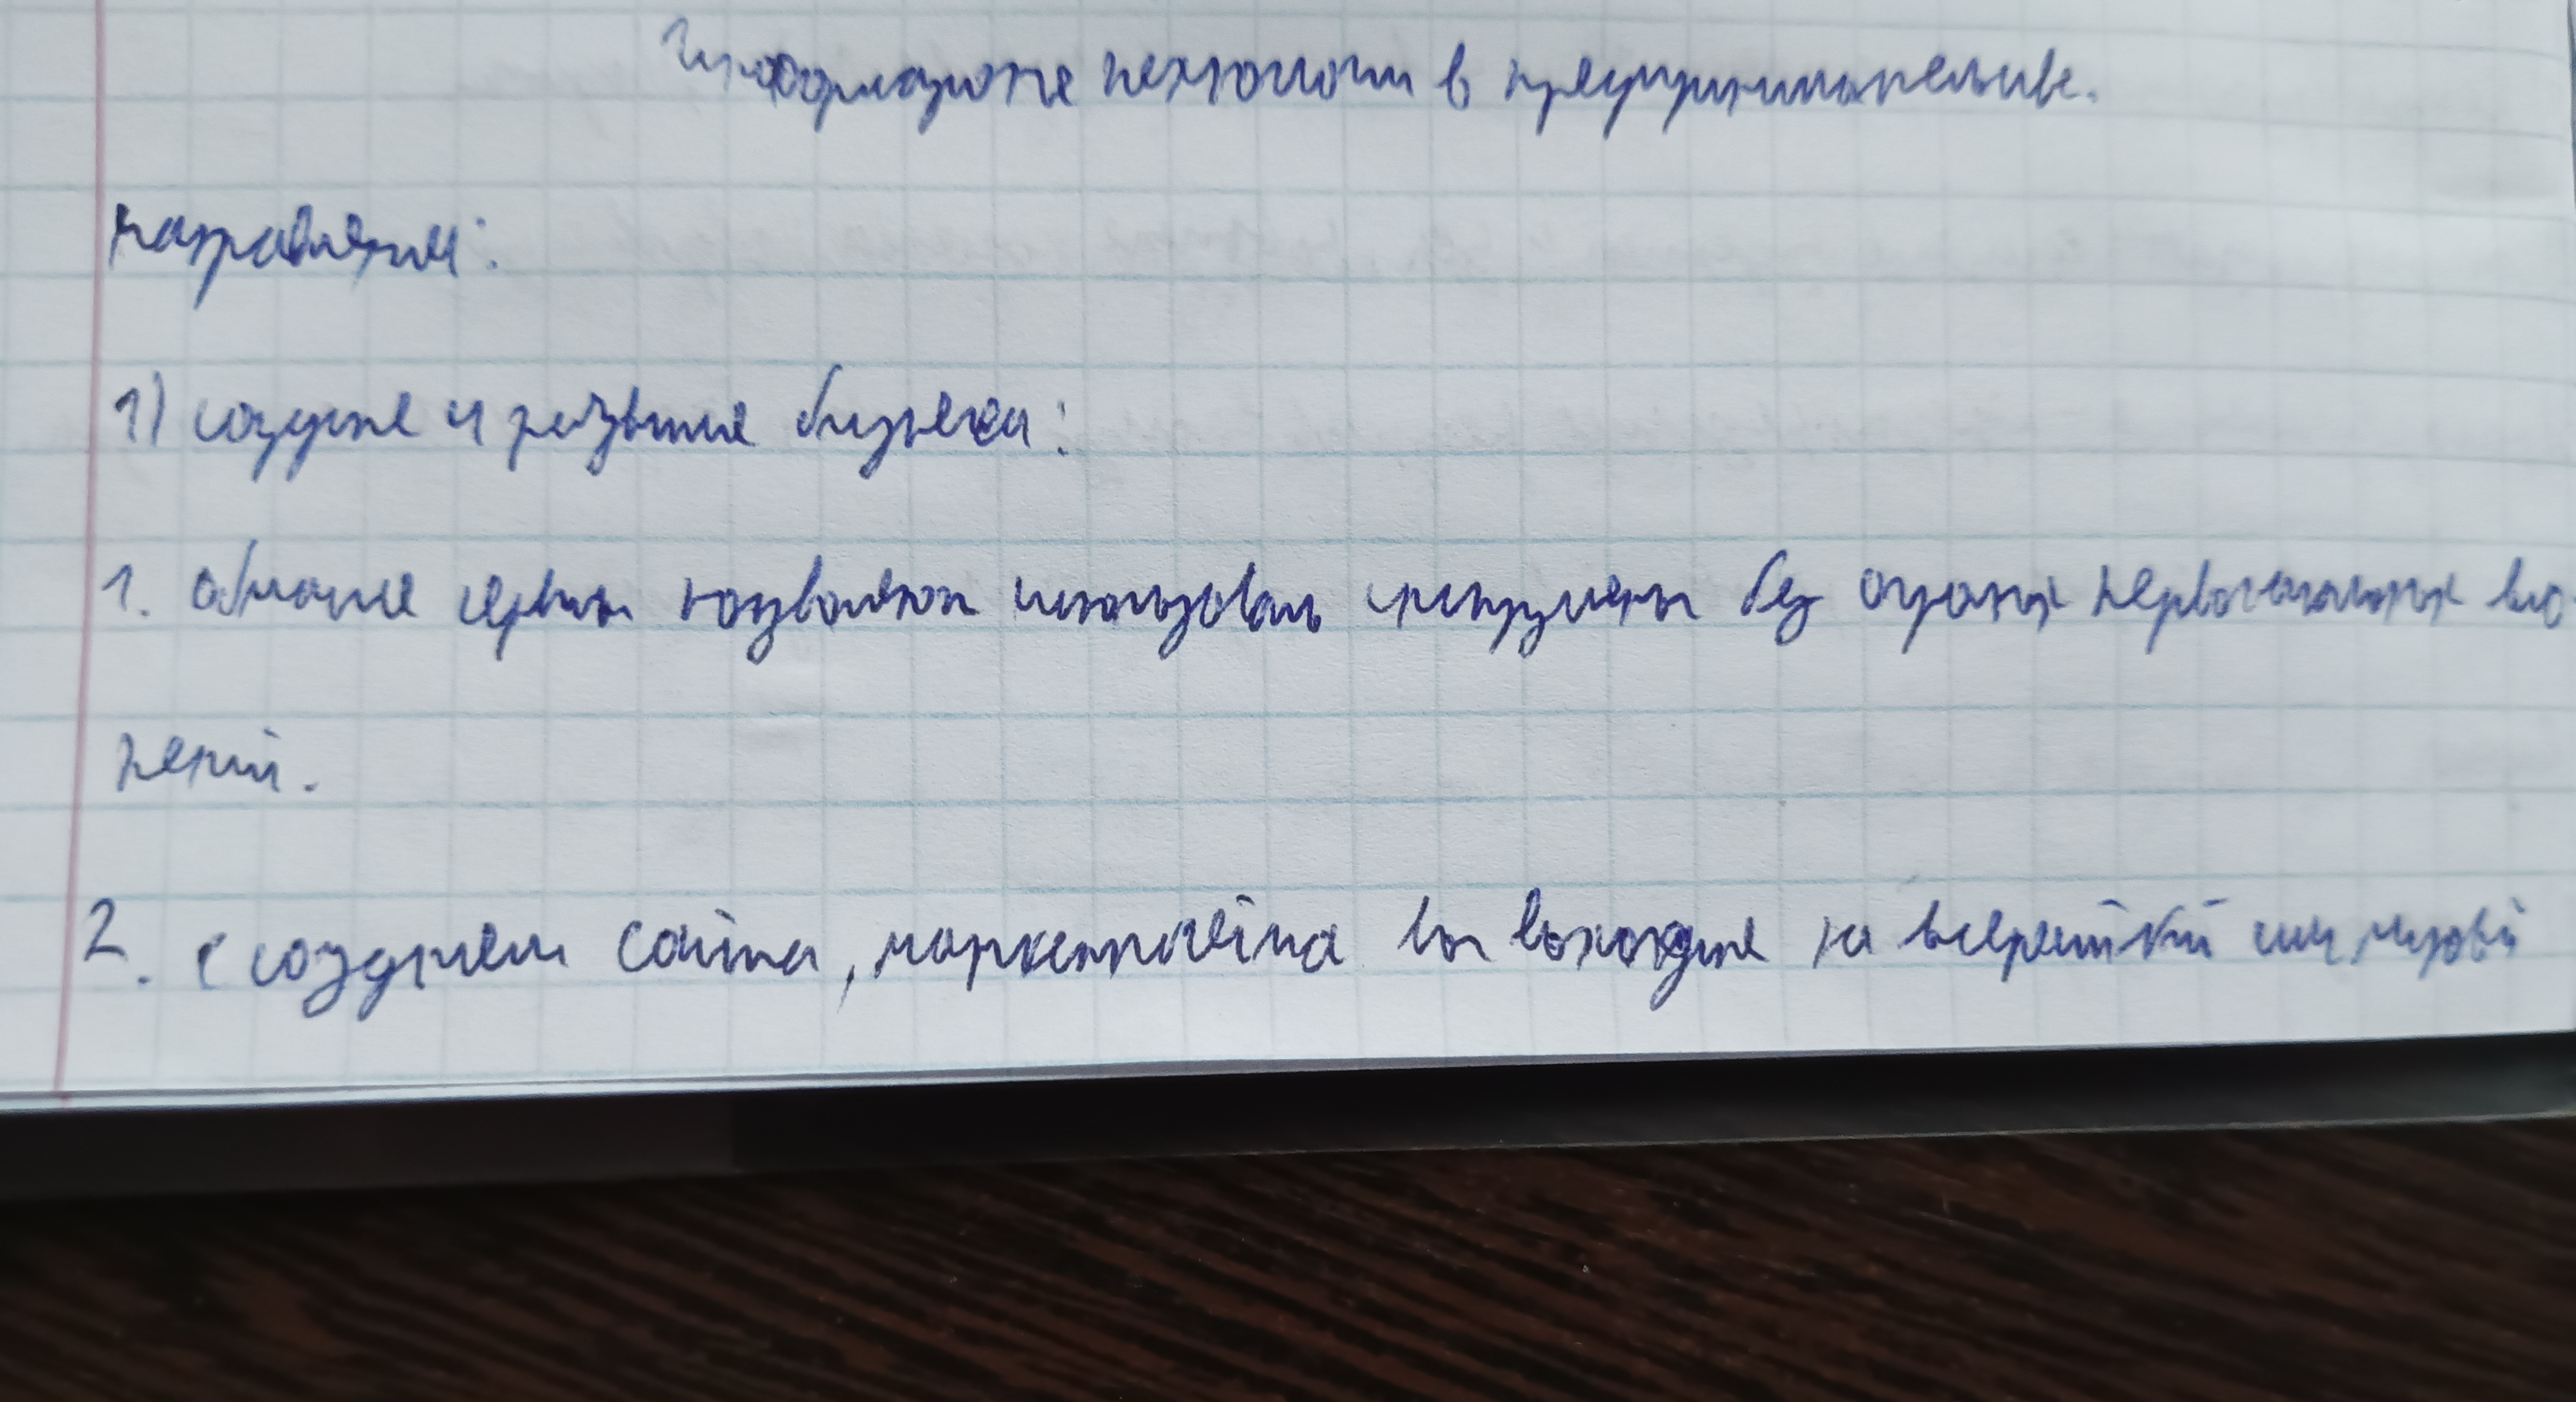 Информационе технологии в предпринимательстве.
направления:
1) создание и развитие бизнеса:
1. облачные сервисы позволяют использовать инструменты без огромных первоначальных вло-
жений.
2. с созданием сайта, маркетплейса вы выходите на всероссийский или мировой